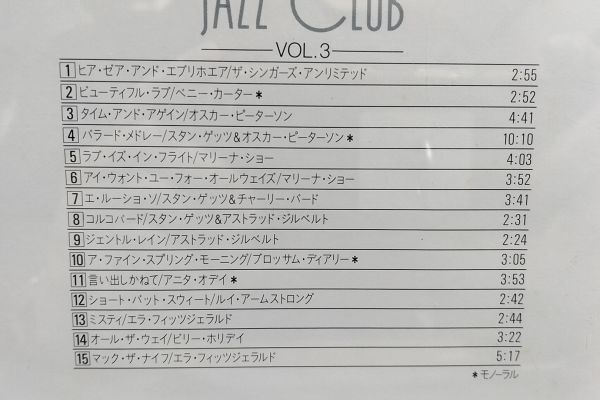 JAZZ CLUB
VOL.3
1 ヒア・ゼア・アンド・エブリホエア/ザ・シンガーズ・アンリミテッド 2:55
2 ビューティフル・ラブ/ベニー・カーター＊ 2:52
3 タイム・アンド・アゲイン/オスカー・ピーターソン 4:41
4 バラード・メドレー/スタン・ゲッツ&オスカー・ピーターソン＊ 10:10
5 ラブ・イズ・イン・フライト/マリーナ・ショー 4:03
6 アイ・ウォント・ユー・フォー・オールウェイズ/マリーナ・ショー 3:52
7 エ・ルーショ・ソ/スタン・ゲッツ&チャーリー・バード 3:41
8 コルコバード/スタン・ゲッツ&アストラッド・ジルベルト 2:31
9 ジェントル・レイン/アストラッド・ジルベルト 2:24
10 ア・ファイン・スプリング・モーニング/ブロッサム・ディアリー＊ 3:05
11 言い出しかねて/アニタ・オデイ＊ 3:53
12 ショート・バット・スウィート/ルイ・アームストロング 2:42
13 ミスティ/エラ・フィッツジェラルド 2:44
14 オール・ザ・ウェイ/ビリー・ホリデイ 3:22
15 マック・ザ・ナイフ/エラ・フィッツジェラルド 5:17
＊モノーラル